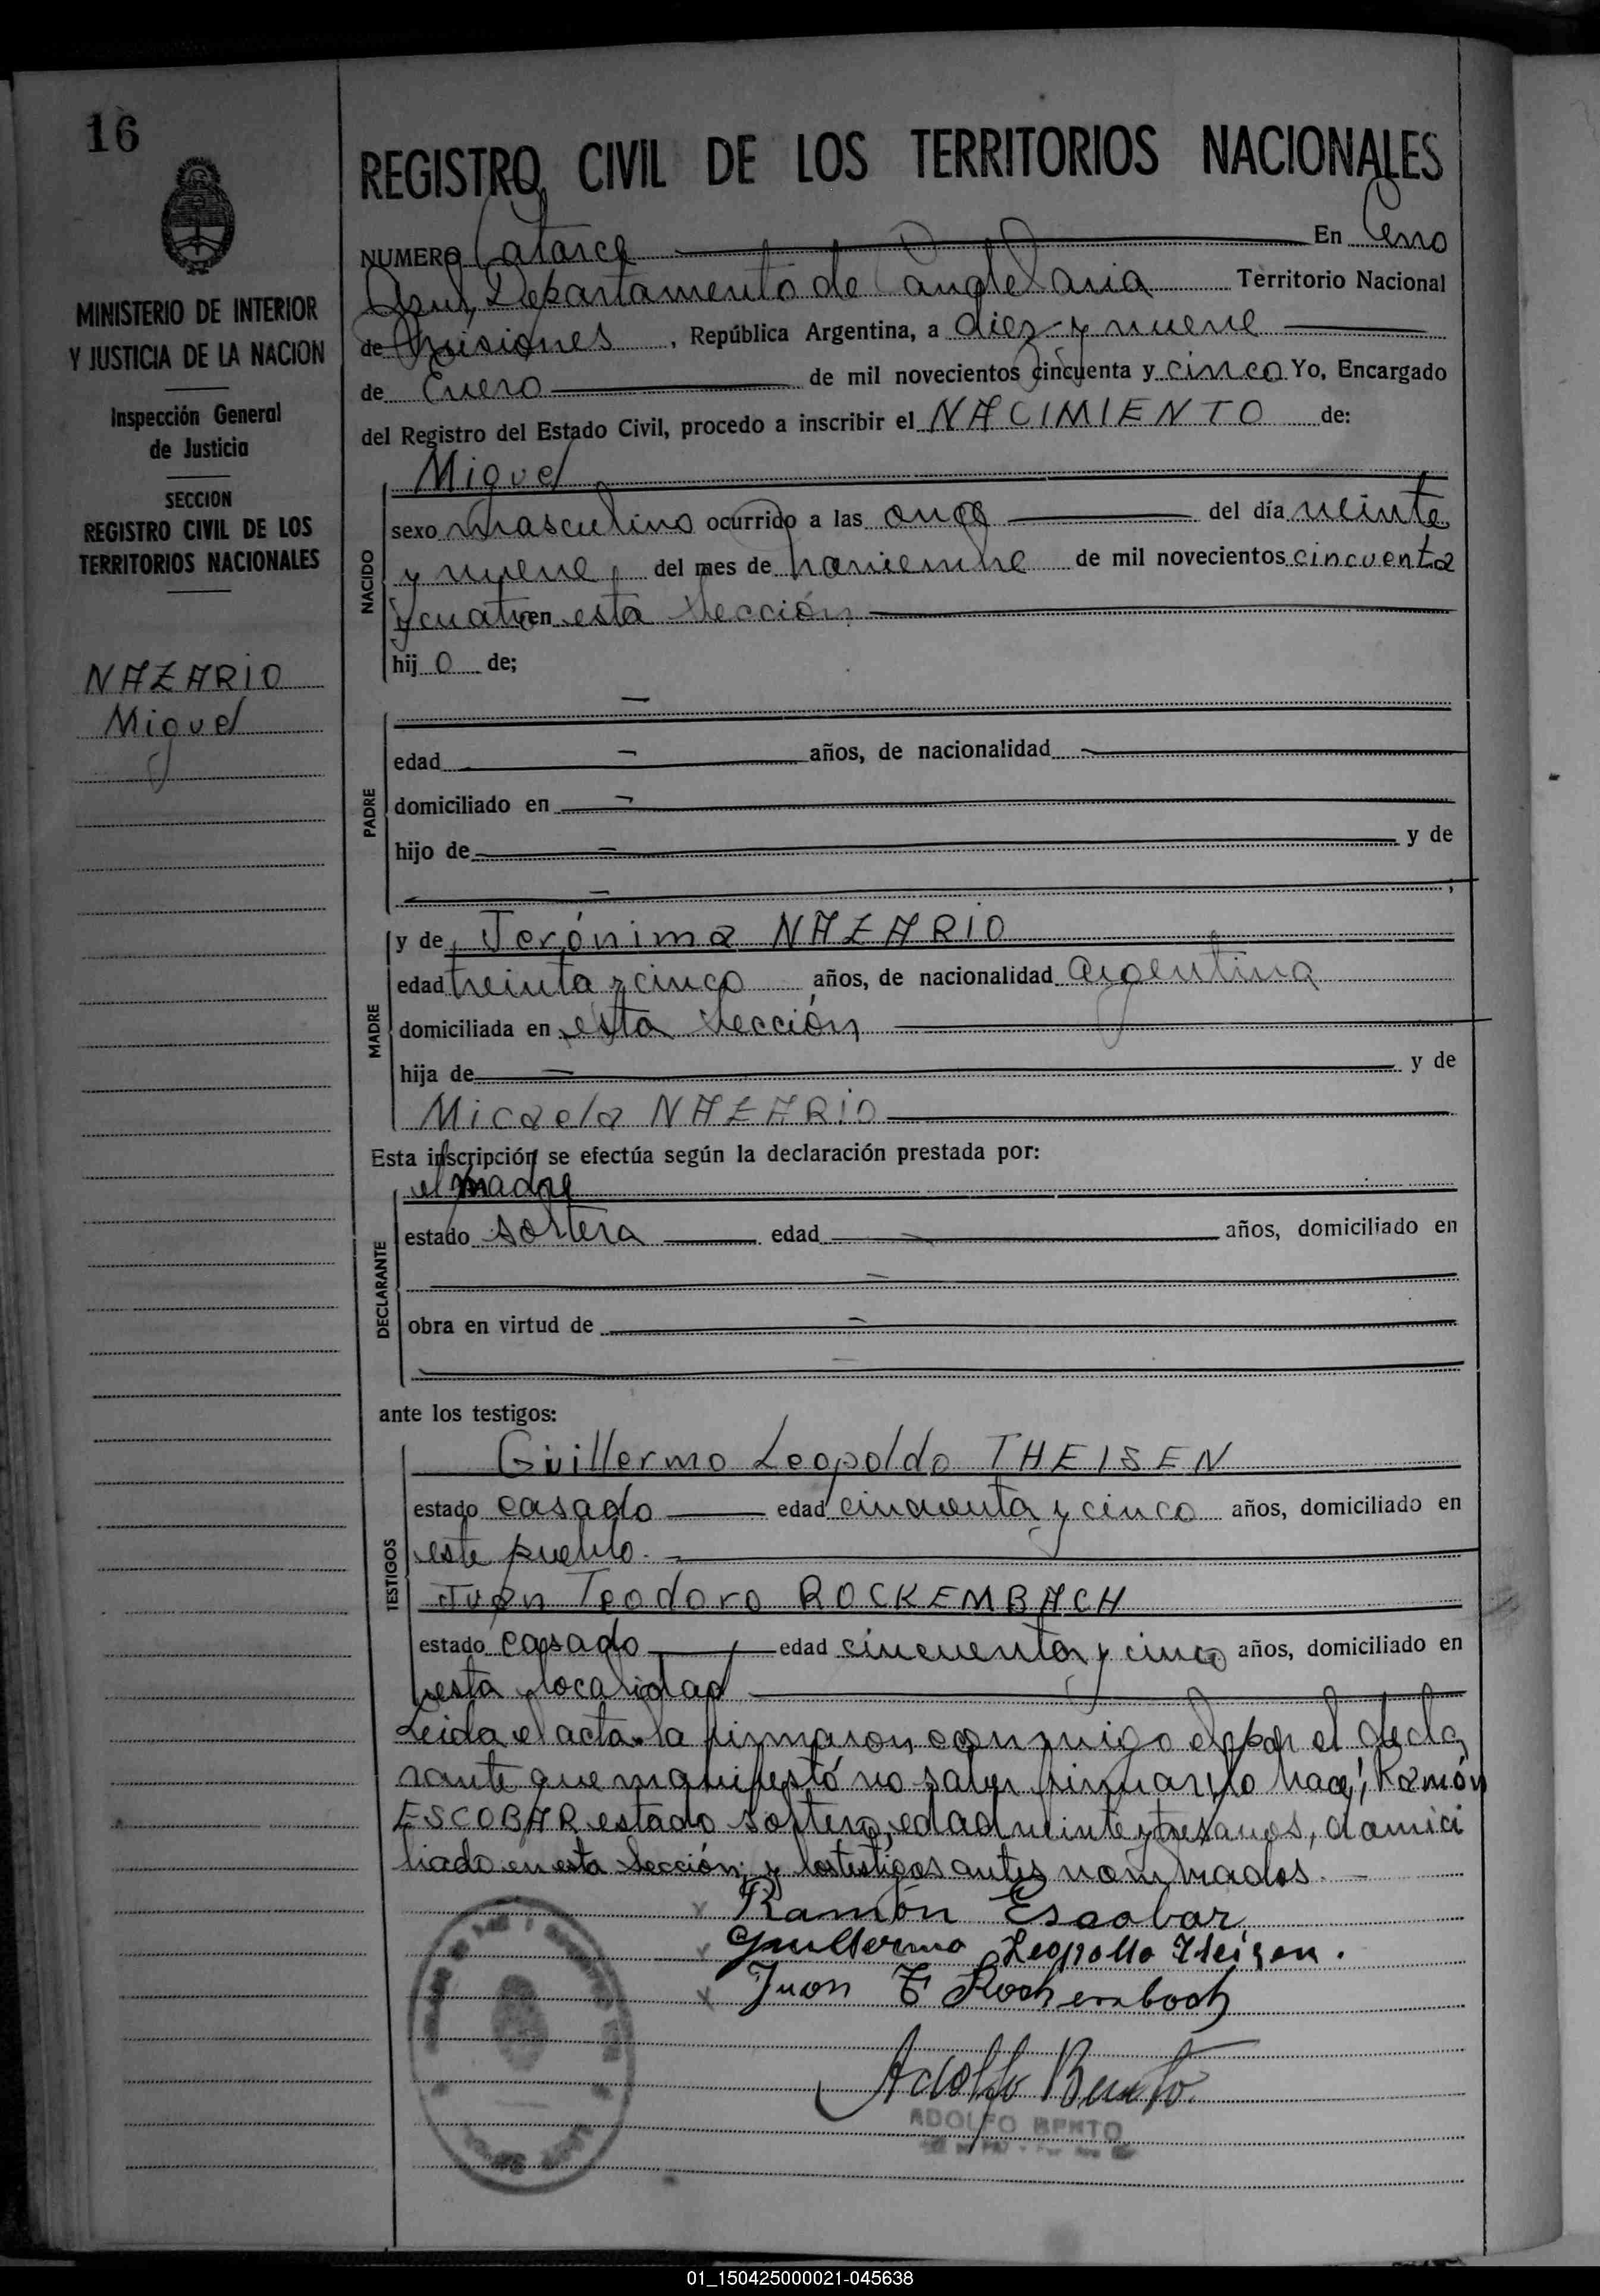 16
MINISTERIO DE INTERIOR
Y JUSTICIA DE LA NACION
Inspección General
de Justicia
SECCION
REGISTRO CIVIL DE LOS
TERRITORIOS NACIONALES
NAZARIO
Miguel
REGISTRO CIVIL DE LOS TERRITORIOS NACIONALES
NUMERO Catorce En Cerro
Azul, Departamento de Candelaria Territorio Nacional
de Misiones, República Argentina, a diez y nueve
de Enero de mil novecientos cincuenta y cinco Yo, Encargado
del Registro del Estado Civil, procedo a inscribir el NACIMIENTO de:
Miguel
NACIDO
sexo masculino ocurrido a las once del día veinte
y nueve, del mes de noviembre de mil novecientos cincuenta
y cuatro en esta Sección
hijo de;
PADRE
edad años, de nacionalidad
domiciliado en
hijo de y de
;
MADRE
y de Jerónima NAZARIO
edad treinta y cinco años, de nacionalidad Argentina
domiciliada en esta Sección
hija de y de
Micaela NAZARIO
Esta inscripción se efectúa según la declaración prestada por:
DECLARANTE
el madre
estado soltera edad años, domiciliado en
obra en virtud de
ante los testigos:
TESTIGOS
Guillermo Leopoldo THEISEN
estado casado edad cincuenta y cinco años, domiciliado en
este pueblo.
Juan Teodoro ROCKEMBACH
estado casado edad cincuenta y cinco años, domiciliado en
esta localidad
Leida el acta la firmaron conmigo por el decla
rante que manifestó no saber firmar lo hace; Ramón
ESCOBAR estado soltero, edad veinte y tres años, domici
liado en esta Sección; y los testigos antes nombrados.
Ramón Escobar
Guillermo Leopoldo Theisen.
Juan T Rockembach
Adolfo Bento
ADOLFO BENTO
01_150425000021-045638